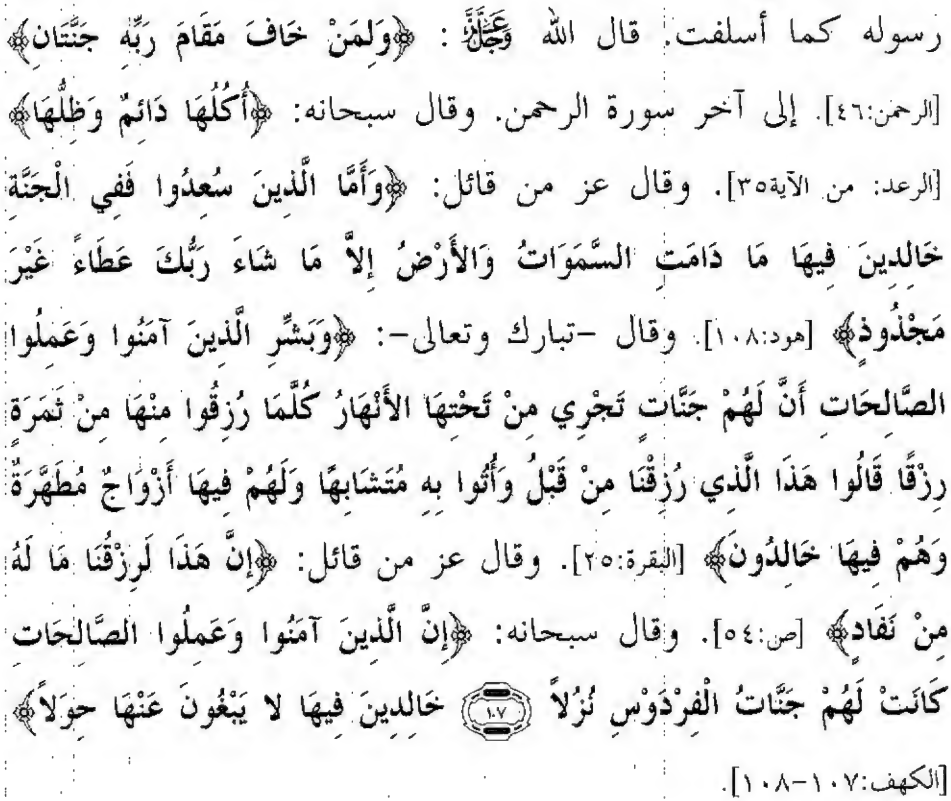 رسوله كما أسلفت. قال الله عَزَّوَجَلَّ : ﴿وَلِمَنْ خَافَ مَقَامَ رَبِّهِ جَنَّتَانِ﴾
[الرحمن:٤٦]. إلى آخر سورة الرحمن. وقال سبحانه: ﴿أُكُلُهَا دَائِمٌ وَظِلُّهَا﴾
[الرعد: من الآية٣٥]. وقال عز من قائل: ﴿وَأَمَّا الَّذِينَ سُعِدُوا فَفِي الْجَنَّةِ
خَالِدِينَ فِيهَا مَا دَامَتِ السَّمَوَاتُ وَالأَرْضُ إِلاَّ مَا شَاءَ رَبُّكَ عَطَاءً غَيْرَ
مَجْذُوذٍ﴾ [هود:١٠٨]. وقال -تبارك وتعالى-: ﴿وَبَشِّرِ الَّذِينَ آمَنُوا وَعَمِلُوا
الصَّالِحَاتِ أَنَّ لَهُمْ جَنَّاتٍ تَجْرِي مِنْ تَحْتِهَا الأَنْهَارُ كُلَّمَا رُزِقُوا مِنْهَا مِنْ ثَمَرَةٍ
رِزْقًا قَالُوا هَذَا الَّذِي رُزِقْنَا مِنْ قَبْلُ وَأُتُوا بِهِ مُتَشَابِهًا وَلَهُمْ فِيهَا أَزْوَاجٌ مُطَهَّرَةٌ
وَهُمْ فِيهَا خَالِدُونَ﴾ [البقرة:٢٥]. وقال عز من قائل: ﴿إِنَّ هَذَا لَرِزْقُنَا مَا لَهُ
مِنْ نَفَادٍ﴾ [ص:٥٤]. وقال سبحانه: ﴿إِنَّ الَّذِينَ آمَنُوا وَعَمِلُوا الصَّالِحَاتِ
كَانَتْ لَهُمْ جَنَّاتُ الْفِرْدَوْسِ نُزُلاً ١٠٧ خَالِدِينَ فِيهَا لا يَبْغُونَ عَنْهَا حِوَلاً﴾
[الكهف:١٠٧-١٠٨].